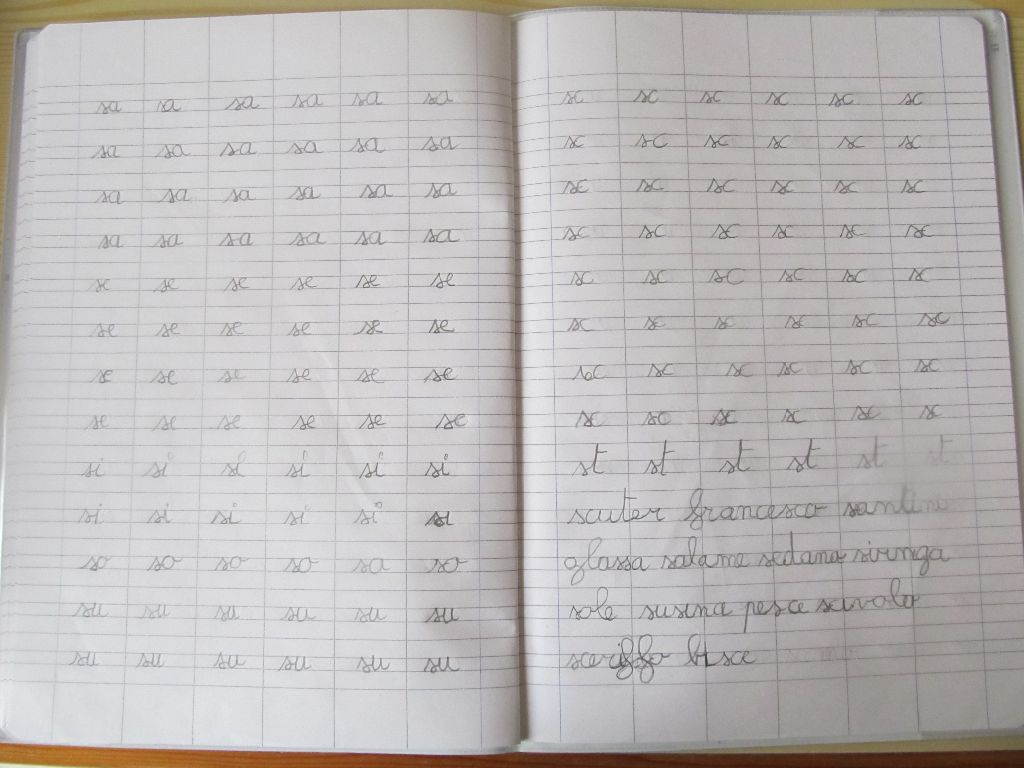 sa sa sa sa sa sa
sa sa sa sa sa sa
sa sa sa sa sa sa
sa sa sa sa sa sa
se se se se se se
se se se se se se
se se se se se se
se se se se se se
si si si si si si
si si si si si si
so so so so sa so
su su su su su su
su su su su su su
sc sc sc sc sc sc
sc sc sc sc sc sc
sc sc sc sc sc sc
sc sc sc sc sc sc
sc sc sc sc sc sc
sc sc sc sc sc sc
sc sc sc sc sc sc
sc sc sc sc sc sc
st st st st st st
scuter francesco
glassa salame sedano siringa
sole susina pesce scivolo
sceriffo bisce